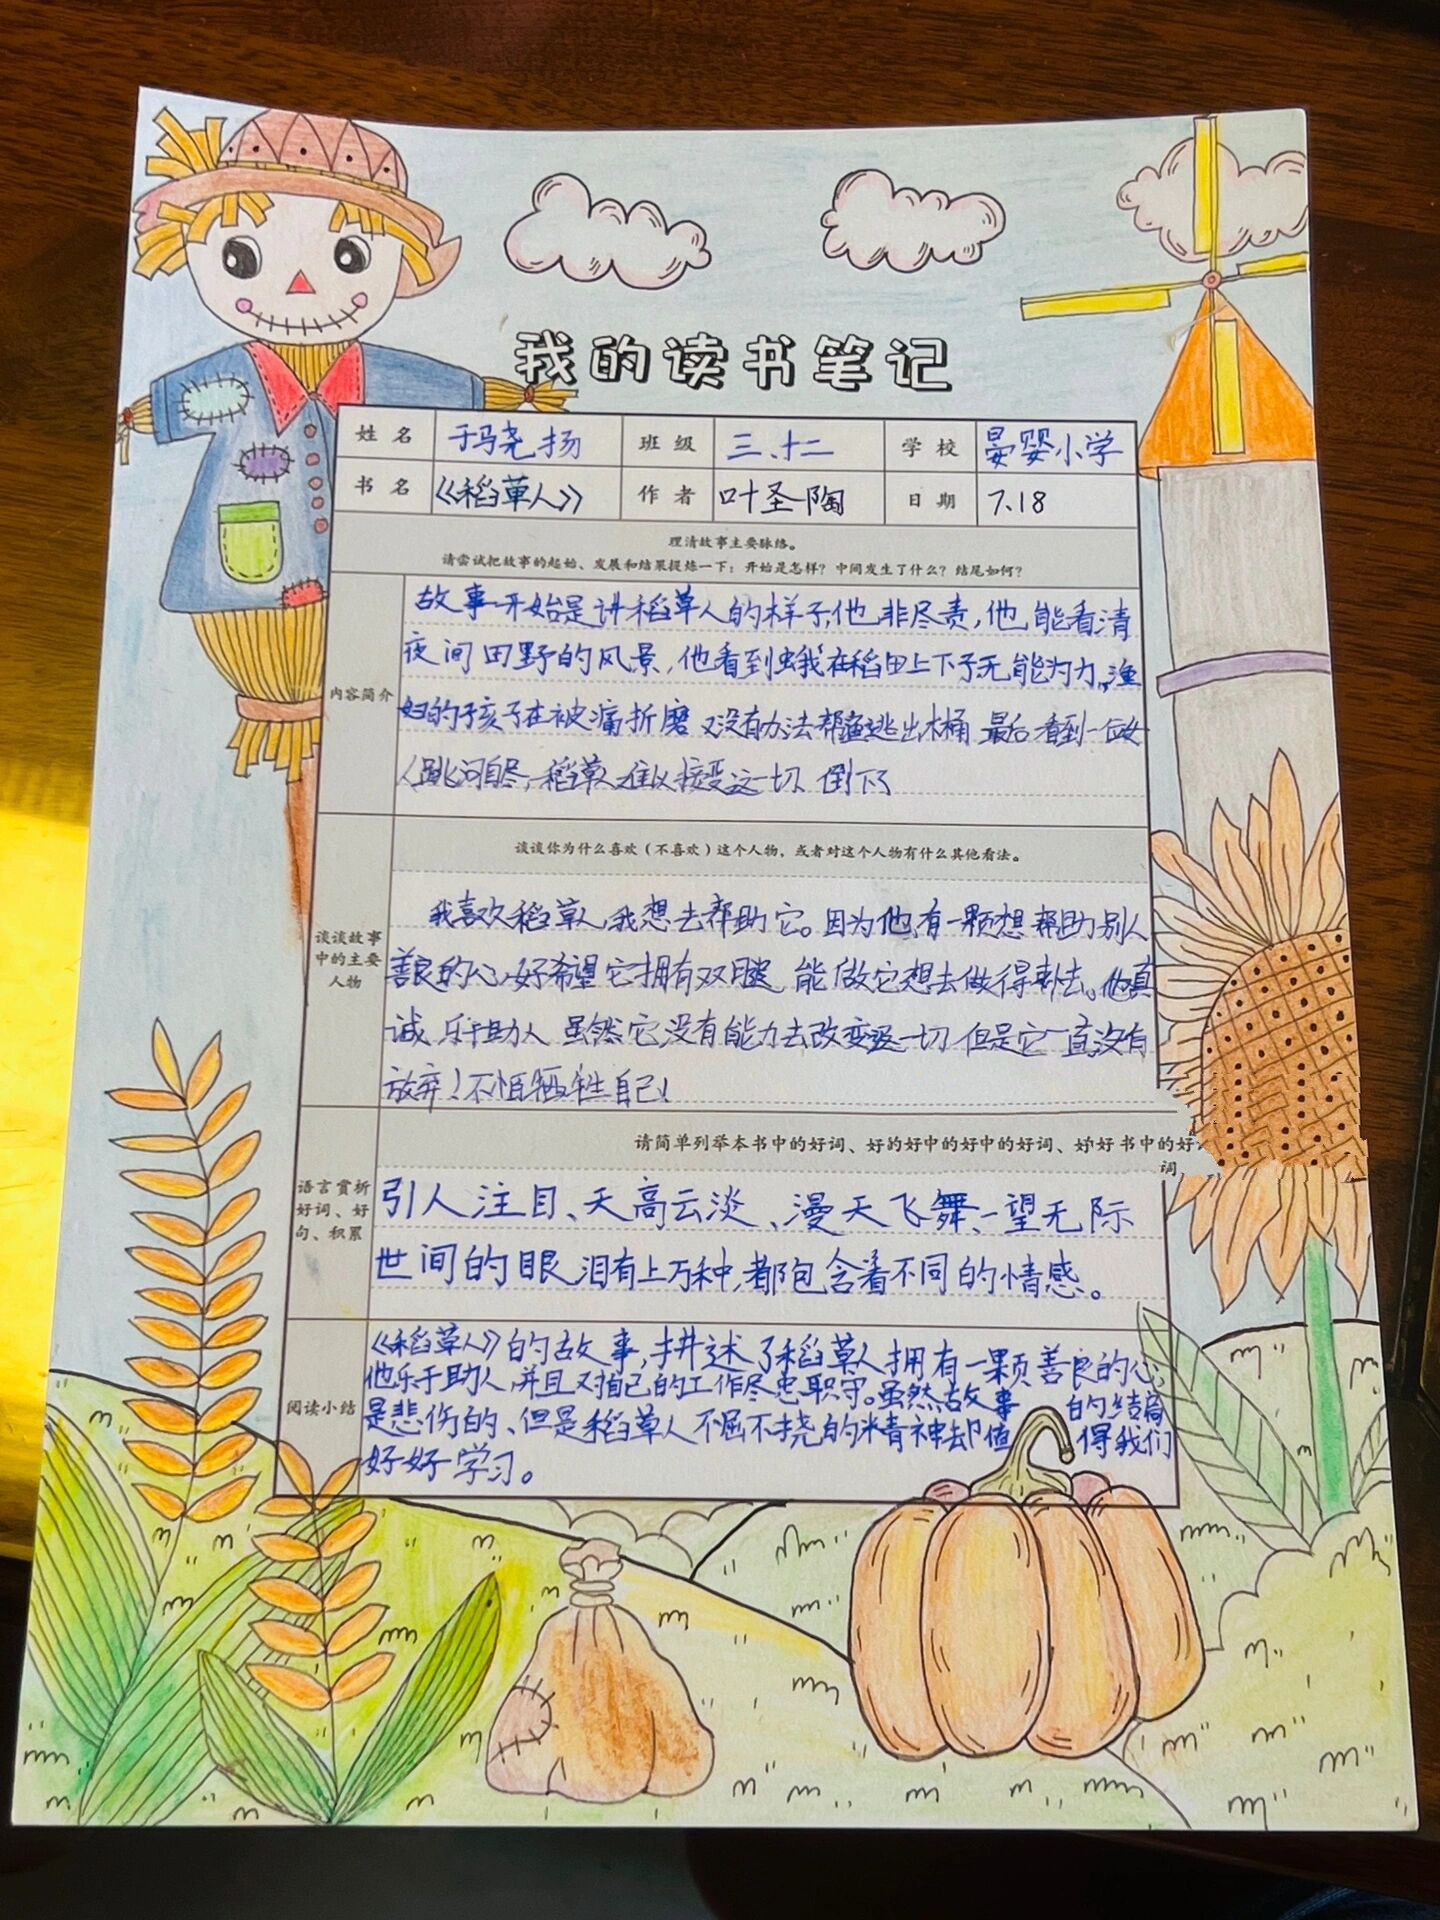 我的读书笔记
姓名 于玛尧扬 班级 三、十二 学校 晏婴小学
书名 《稻草人》 作者 叶圣陶 日期 7.18
理清故事主要脉络。
请尝试把故事的起始、发展和结果提炼一下：开始是怎样？中间发生了什么？结尾如何？
内容简介
故事开始是讲稻草人的样子,他非尽责,他能看清
夜间田野的风景,他看到蛾在稻田上下子无能为力,渔
妇的孩子在被病折磨又没有办法帮鱼逃出木桶 最后看到一位女
人跳河自尽,稻草人难以接受这一切 倒下了
谈谈你为什么喜欢（不喜欢）这个人物，或者对这个人物有什么其他看法。
谈谈故事
中的主要
人物
我喜欢稻草人,我想去帮助它。因为他有一颗想帮助别人
善良的心,好希望它拥有双腿 能做它想去做得事去。他真
诚 乐于助人 虽然它没有能力去改变这一切 但是它一直没有
放弃!不怕牺牲自己!
请简单列举本书中的好词、好的好中的好中的好词、好好书中的好
词
语言赏析
好词、好
句、积累
引人注目、天高云淡、漫天飞舞、一望无际
世间的眼泪有上万种,都包含着不同的情感。
阅读小结
《稻草人》的故事,讲述了稻草人拥有一颗善良的心,
他乐于助人,并且对自己的工作尽忠职守。虽然故事 的结局
是悲伤的、但是稻草人不屈不挠的精神却值 得我们
好好学习。